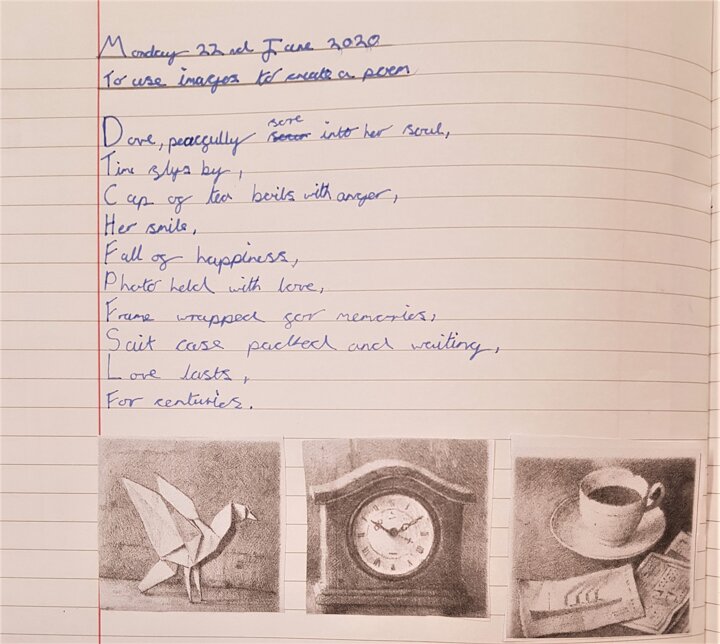 Monday 22nd June 2020
To use images to create a poem
Dove, peacefully sore into her soul,
Time flys by,
Cup of tea boils with anger,
Her smile,
Full of happiness,
Photo held with love,
Frame wrapped for memories,
Suit case packed and waiting,
Love lasts,
For centuries.